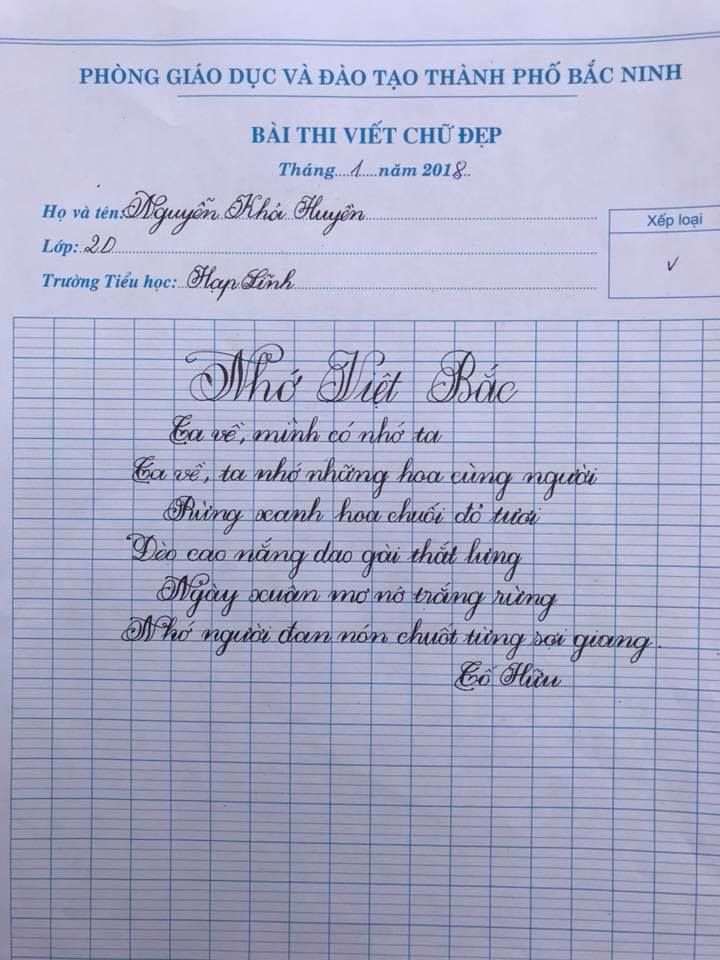 PHÒNG GIÁO DỤC VÀ ĐÀO TẠO THÀNH PHỐ BẮC NINH
BÀI THI VIẾT CHỮ ĐẸP
Tháng....1....năm 2018..
Họ và tên: Nguyễn Khả Huyền
Xếp loại
Lớp: 2D
Trường Tiểu học: Hạp Lĩnh
Nhớ Việt Bắc
Ta về, mình có nhớ ta
Ta về, ta nhớ những hoa cùng người
Rừng xanh hoa chuối đỏ tươi
Đèo cao nắng dao gài thắt lưng
Ngày xuân mơ nở trắng rừng
Nhớ người đan nón chuốt từng sợi giang.
Tố Hữu